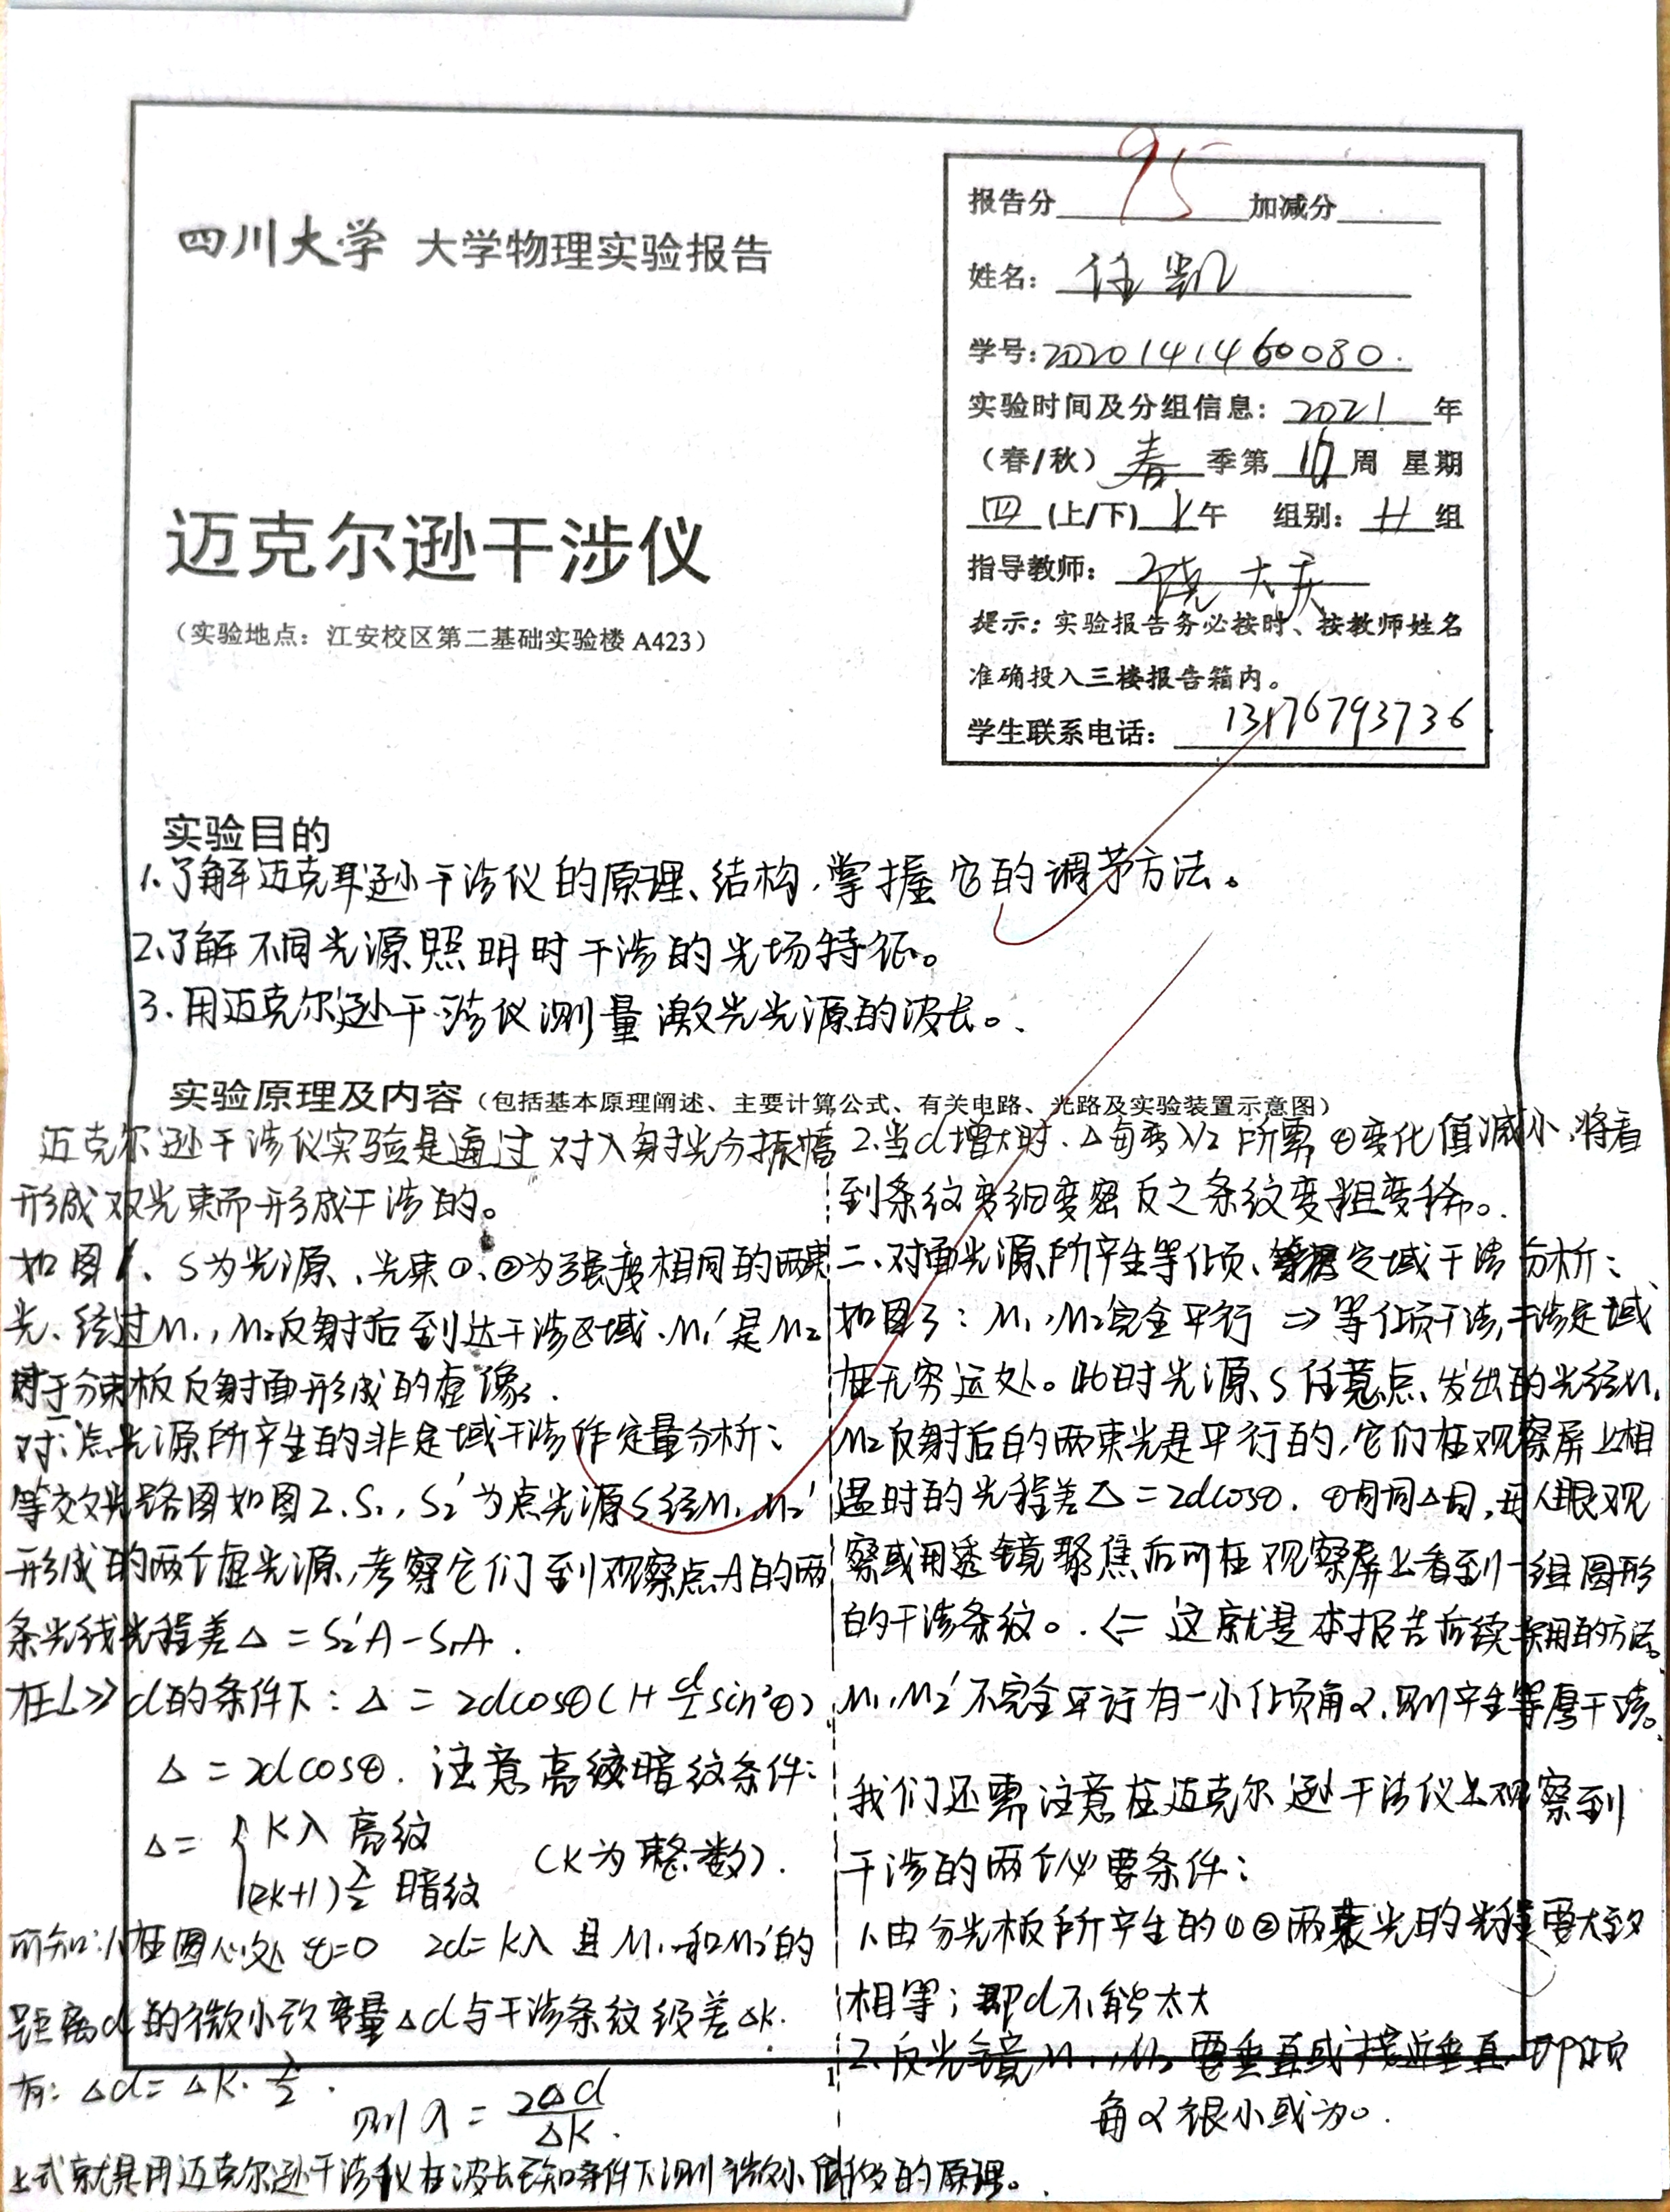 报告分 95 加减分
四川大学 大学物理实验报告
姓名: 任凯
学号: 2020141460080.
实验时间及分组信息: 2021 年
（春/秋）春 季第 16 周 星期
四 (上/下) 上 午 组别: 廿 组
迈克尔逊干涉仪
指导教师: 饶大庆
（实验地点：江安校区第二基础实验楼 A423）
提示: 实验报告务必按时、按教师姓名
准确投入三楼报告箱内。
学生联系电话: 13176793736
实验目的
1.了解迈克耳逊干涉仪的原理、结构,掌握它的调节方法。
2.了解不同光源照明时干涉的光场特征。
3.用迈克尔逊干涉仪测量激光光源的波长。
实验原理及内容（包括基本原理阐述、主要计算公式、有关电路、光路及实验装置示意图）
迈克尔逊干涉仪实验是通过对入射光分振幅
形成双光束而形成干涉的。
如图1、S为光源、光束①、②为强度相同的两束
光、经过M₁,M₂反射后到达干涉区域.M₁′是M₂
对于分束板反射面形成的虚像.
对:点光源所产生的非定域干涉作定量分析:
等效光路图如图2.S₁,S₂′为点光源S经M₁,M₂′
形成的两个虚光源,考察它们到观察点A的两
条光线光程差Δ=S₂′A-S₁A.
在L>>d的条件下:Δ=2dcosθ(1+d/L sin²θ)
Δ=2dcosθ. 注意亮纹暗纹条件:
Δ= { Kλ 亮纹
(2K+1)λ/2 暗纹 (K为整数).
可知:1.在圆心处 θ=0 2d=Kλ 且M₁和M₂′的
距离d的微小改变量Δd与干涉条纹级差ΔK.
有: Δd=ΔK·λ/2.
则 λ=2Δd/ΔK.
上式就是用迈克尔逊干涉仪在波长已知条件下测微小位移的原理。
2.当d增大时.Δ每变λ/2所需θ变化值减小,将看
到条纹变细变密反之条纹变粗变稀。
二、对面光源所产生等倾、等厚定域干涉分析:
如图3:M₁,M₂完全平行 ⇒ 等倾干涉,干涉定域
在无穷远处。此时光源S任意点发出的光经M₁
M₂反射后的两束光是平行的,它们在观察屏上相
遇时的光程差Δ=2dcosθ. θ相同Δ同,用人眼观
察或用透镜聚焦后可在观察屏上看到一组圆形
的干涉条纹。⇐ 这就是本报告后续采用的方法。
M₁,M₂′不完全平行有一小倾角α,则产生等厚干涉。
我们还需注意在迈克尔逊干涉仪上观察到
干涉的两个必要条件:
1.由分光板所产生的①②两束光的光程要大致
相等;即d不能太大
2.反光镜M₁,M₂要垂直或接近垂直.即倾
角α很小或为0.
1